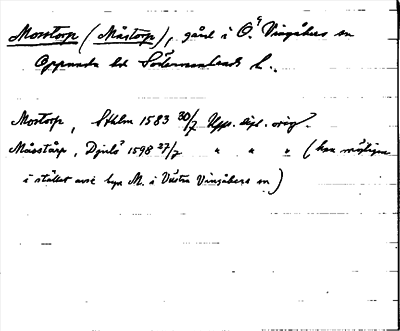 Mosstorp (Måstorp), gård i Ö. Vingåkers sn
Oppunda hd Södermanlands L.
Mostorp, Sthlm 1583 30/7 Upps. dipl. orig.
Måsstårp, Djulö 1598 27/7 " " " (kan möjligen
i stället avse byn M. i Västra Vingåkers sn)